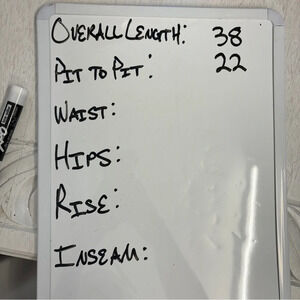 Overall Length: 38
Pit to Pit: 22
Waist:
Hips:
Rise:
Inseam: